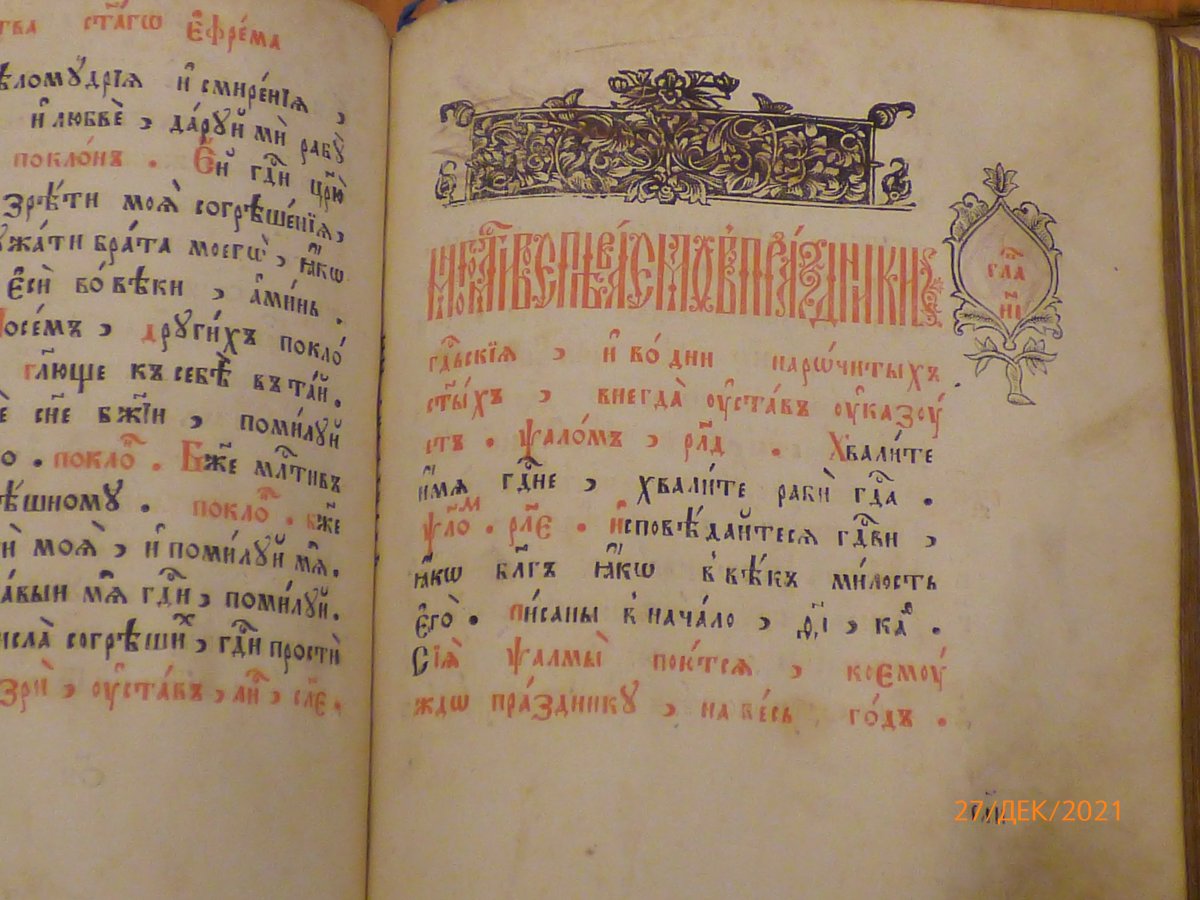 ства ст҃а́гѡ є҆фре́ма
ѣломꙋ́дрїѧ и҆ смире́нїѧ ,
и҆ любвѐ , да́рꙋй мѝ рабꙋ̀
покло́нъ . Е҆й гдⷭ҇и цр҃ю̀
зрѣ́ти моѧ̀ согрѣше́нїѧ,
ꙋжа́ти бра́та моегѡ̀ , ꙗ҆́кѡ
є҆сѝ во́ вѣки , а҆ми́нь .
Посе́мъ , дрꙋги́хъ покло́
гл҃юще къ себѣ̀ въ та́й .
сн҃е бж҃їи , поми́лꙋй
. покло́ⷩ . Бж҃е млⷭ҇тивъ
ѣ́шномꙋ . покло́ⷩ . бж҃е
моѧ̀ , и҆ поми́лꙋй мѧ̀ .
а́выи мѧ̀ гдⷭ҇и , поми́лꙋй .
исла̀ согрѣши́хъ , гдⷭ҇и простѝ
зрѝ , оу҆ста́въ , лиⷭ҇ , сл҃є .
млт҃вы пѣва́ємы в пра́здники
гдⷭ҇ьскїѧ , и҆ во́ дни наро́читыхъ
ст҃ы́хъ , внегда̀ оу҆ста́въ оу҆казꙋ́
етъ . ѱало́мъ , рл҃д . Хвали́те
и҆́мѧ гдⷭ҇не , хвали́те рабѝ гдⷭ҇а .
ѱл҃оⷨ . рл҃є . И҆сповѣ́дайтесѧ гдⷭ҇ви ,
ꙗ҆́кѡ бл҃гъ ꙗ҆́кѡ в вѣ́къ ми́лость
є҆гѡ̀ . писаны в нача́ло , ка҃ .
Сїѧ̀ ѱалмы̀ пою́тсѧ , коемꙋ́
ждѡ пра́здникꙋ , на ве́сь го́дъ .
гла
ні
27/ДЕК/2021